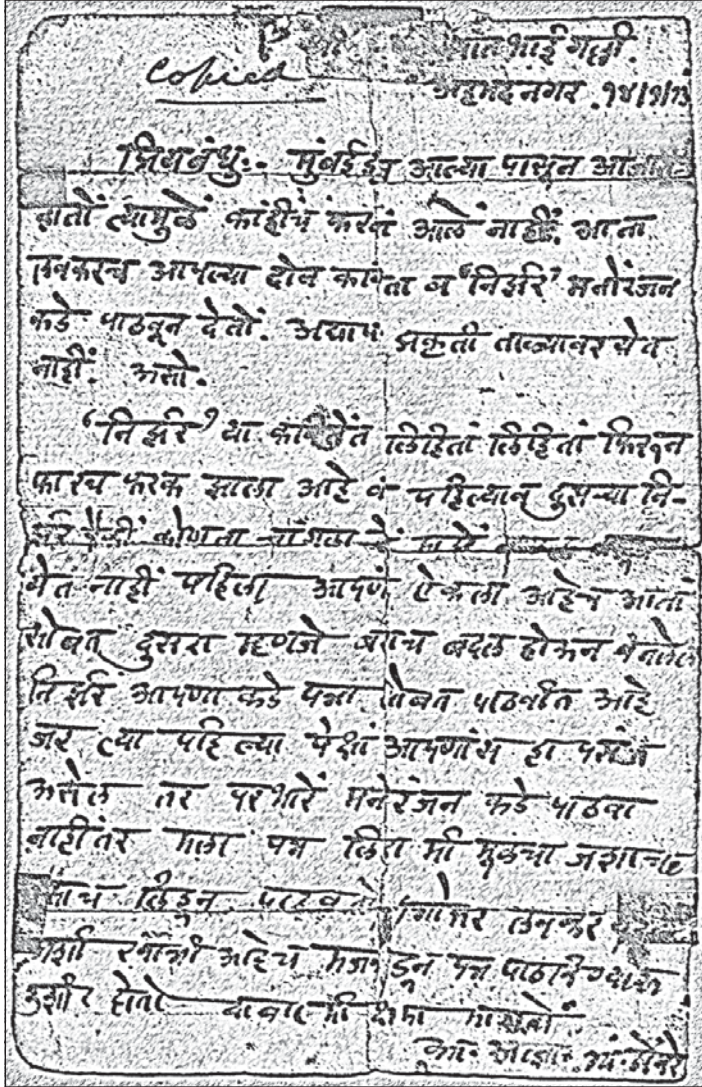 copied
भाई गल्ली.
अहमदनगर. १४/९/
प्रियबंधु:- मुंबईहून आल्या पासून आजारी
होतों त्यामुळें कांहींच करतां आलें नाहीं. आता
लवकरच आपल्या दोन कविता व "निर्झर" मनोरंजन
कडे पाठवून देतों. अद्याप प्रकृती ताळ्यावर येत
नाहीं. असो.
'निर्झर' या कवितेंत लिहितां लिहितां फिरून
फारच फरक झाला आहे व पहिल्यान् दुसऱ्या नि-
र्झर पैकीं कोणता चांगला हें
येत नाहीं पहिला आपण ऐकला आहेच आतां
सोबत दुसरा म्हणजे बराच बदल होऊन बनलेला
निर्झर आपणा कडे पत्रा सोबत पाठवीत आहे
जर त्या पहिल्या पेक्षां आपणांस हा पसंत
असेल तर परभारें मनोरंजन कडे पाठवा
नाहीतर मला पत्र लिहा मी मुळचा जशाचा
तसाच लिहून पाठवतो लवकर
अशी खात्री आहेच मजकडून पत्र पाठविण्यास
उशीर होतो याबद्दल मी क्षमा मागतों